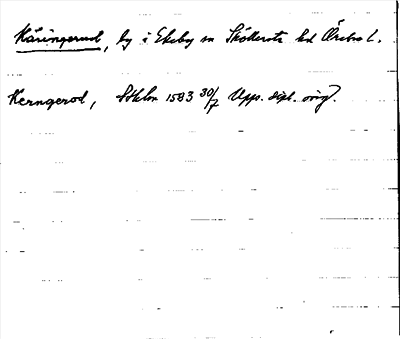 Käringerud, by i Ekeby sn Sköllersta hd Örebro l.
Kerngerod, Sthlm 1583 30/7 Upps. dipl. orig.